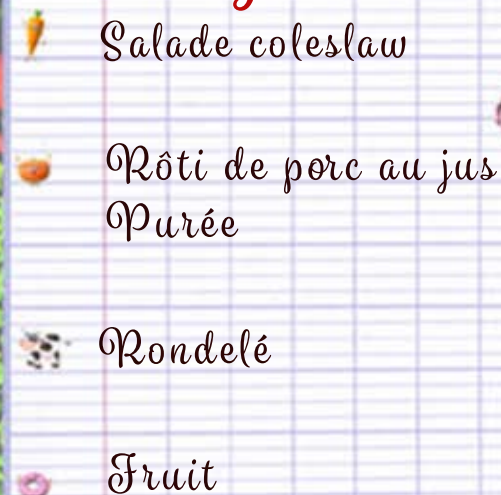 Salade coleslaw
Rôti de porc au jus
Purée
Rondelé
Fruit